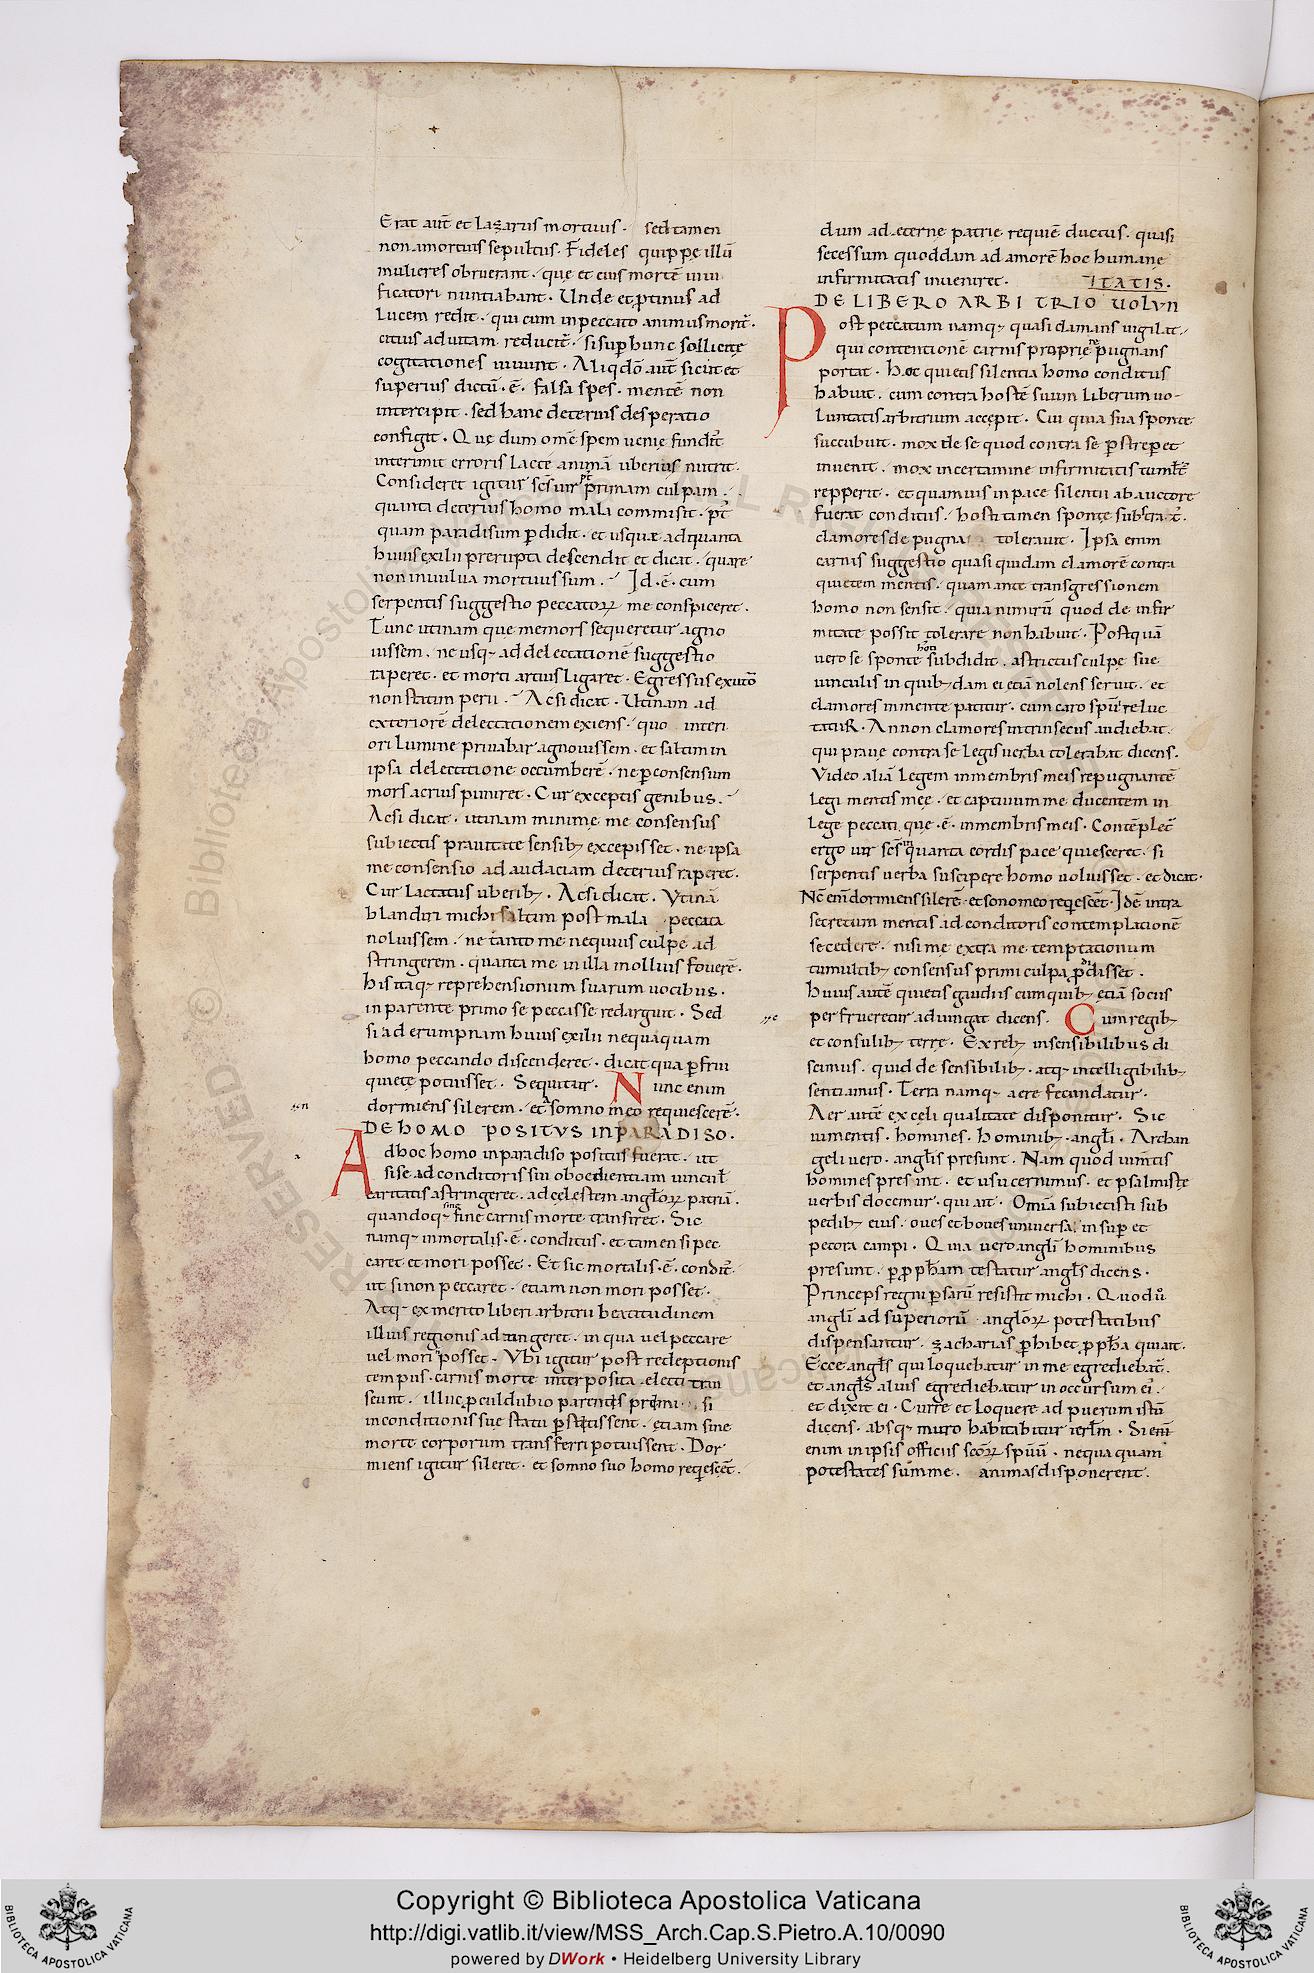 Erat aut̄ et Lazarus mortuus · sed tamen
non a mortuis sepultus . Fideles quippe illū
mulieres obruerant · quę et eius mortē uiui
ficatori nuntiabant · Unde et ꝓtinus ad
Lucem redit · qui cum in peccato animus morit̄ .
citius ad uitam reducit̄ · si sup̄ hunc sollicitę
cogitationes uiuunt · Aliqdō aut̄ sicut et
superius dictū · ē · falsa spes · mentē non
intercipit · sed hanc deterius desperatio
configit · Quę dum omē spem uenię fundit̄
interimit erroris Lacte animā uberius nutrit .
Consideret igitur scs̄ uir post primam culpam .
quanta deterius homo mala commisit · pt̄
quam paradisum p̄didit · et usquæ ad quanta
huius exilii prerupta descendit et dicat · quare
non in uulua mortuus sum . Id · ē · cum
serpentis suggestio peccatoꝝ me conspiceret .
Tunc utinam que me mors sequeretur agno
uissem · ne usq; ad delectationē suggestio
raperet · et morti artius ligaret · Egressus ex utō
non statim perii . Acsi dicat · Utinam ad
exteriorē delectationem exiens · quo interi
ori Lumine priuabar agnouissem · et saltim in
ipsa delectatione occumberē · ne ꝑ consensum
mors acrius puniret · Cur exceptis genibus .
Acsi dicat · utinam minimę me consensus
subiectis prauitate sensib; excepisset · ne ipsa
me consensio ad audaciam deterius raperet .
Cur Lactatus uberib; . Acsi dicat · Utinā
blandiri michi saltim post mala peccata
noluissem · ne tanto me nequius culpę ad
stringerem · quanta me in illa mollius fouerē .
his itaq; reprehensionum suarum uocibus .
in parente primo se peccasse redarguit · Sed
si ad erumpnam huius exilii nequaquam
homo peccando discenderet · dicat qua ꝑfrui
quietę potuisset · Sequitur . Nunc enim
dormiens silerem · et somno meo requiescerē .
DE HOMO POSITVS IN PARADISO .
Ad hoc homo in paradiso positus fuerat · ut
si se ad conditoris sui oboedientiam uincul̄
caritatis astringeret · ad cęlestem angl̄oꝝ patriā .
quandoq; sine carnis morte transiret · Sic
namq; inmortalis · ē · conditus · et tamen si pec
caret et mori posset · Et sic mortalis · ē · condit̄ .
ut si non peccaret · etiam non mori posset .
Atq; ex merito liberi arbitrii beatitudinem
illius regionis adtingeret · in qua uel peccare
uel mori ń posset . Ubi igitur post redeptionis
tempus · carnis morte interposita · electi tran
seunt · illuc ꝓculdubio parentes primi si
in conditionis suę statu ꝑstitissent · etiam sine
morte corporum transferri potuissent · Dor
miens igitur sileret · et somno suo homo reqiescēt .
dum ad ęternę patrię requiē ductus · quasi
secessum quoddam ad amorē hoc humanę
infirmitatis inueniret . ITATIS .
DE LIBERO ARBITRIO UOLVN
Post peccatum namq; quasi clamans uigilat .
qui contentionē carnis proprię repugnans
portat · hęc quietis silentia homo conditus
habuit · cum contra hostē suum Liberum uo-
Luntatis arbitrium accepit · Cui quia sua sponte
succubuit · mox de se quod contra se ꝑstreperet
inuenit · mox in certamine infirmitatis tumult̄
repperit · et quamuis in pace silentii ab auctore
fuerat conditus · hosti tamen sponte subst̄rat̄ .
clamores de pugna tolerauit · Ipsa enim
carnis suggestio quasi quidam clamorē contra
quietem mentis · quam ante transgressionem
homo non sensit · quia nimirū quod de infir
mitate possit tolerare non habuit · Postquā
uero se sponte hosti subdidit · astrictus culpę suę
uinculis in quib; dam ei etiā nolens seruit · et
clamores in mente patitur · cum caro spūi reluc
tatuR · An non clamores intrinsecus audiebat .
qui prauę contra se legis uerba tolerabat dicens .
Video aliā Legem in membris meis repugnantē
Legi mentis męę · et captiuum me ducentem in
Lege peccati que · ē · in membris meis · Contēplet̄
ergo uir scs̄ in quanta cordis pace quiesceret · si
serpentis uerba suscipere homo noluisset · et dicat .
Nc̄ eni dormiens silerē · et somno meo reqiescēt · Idē intra
secretum mentis ad conditoris contemplationē
secedere · nisi me extra me temptationum
tumultib; consensus primi culpa ꝓdidisset .
huius autē quietis gaudiis cum quib; etiā sociis
perfrueretur adiungat dicens . Cum regib;
et consulib; terrę · Ex reb; insensibilibus di
scimus · quid de sensibilib; · atq; intelligibilib;
sentiamus · Terra namq; aere fecundatur .
Aer autē ex cęli qualitate disponitur · Sic
iumentis · homines · hominib; · angl̄i · Archan
geli uero · angl̄is presunt · Nam quod iumtis
homines presint · et usu cernimus · et psalmistę
uerbis docemur · qui ait · Omīa subiecisti sub
pedib; eius · oues et boues uniuersa · insup̄ et
pecora campi · Quia uero angl̄i hominibus
presunt · ꝑ pph̄am testatur angl̄s dicens .
Princeps regni ꝑsarū resistit michi · Quod ū
angl̄i ad superiorū angl̄oꝝ potestatibus
dispensantur · zacharias ꝓhibet pph̄a qui ait .
Ecce angl̄s qui loquebatur in me egrediebat̄ .
et angl̄s alius egrediebatur in occursum ei̓ .
et dixit ei · Curre et loquere ad puerum istū
dicens · absq; muro habitabitur ierl̄m · Si enī
enim in ipsis officiis scōꝝ spūū · nequaquam
potestates summe · animas disponerent .
Copyright © Biblioteca Apostolica Vaticana
http://digi.vatlib.it/view/MSS_Arch.Cap.S.Pietro.A.10/0090
powered by DWork • Heidelberg University Library
BIBLIOTECA APOSTOLICA VATICANA
BIBLIOTECA APOSTOLICA VATICANA